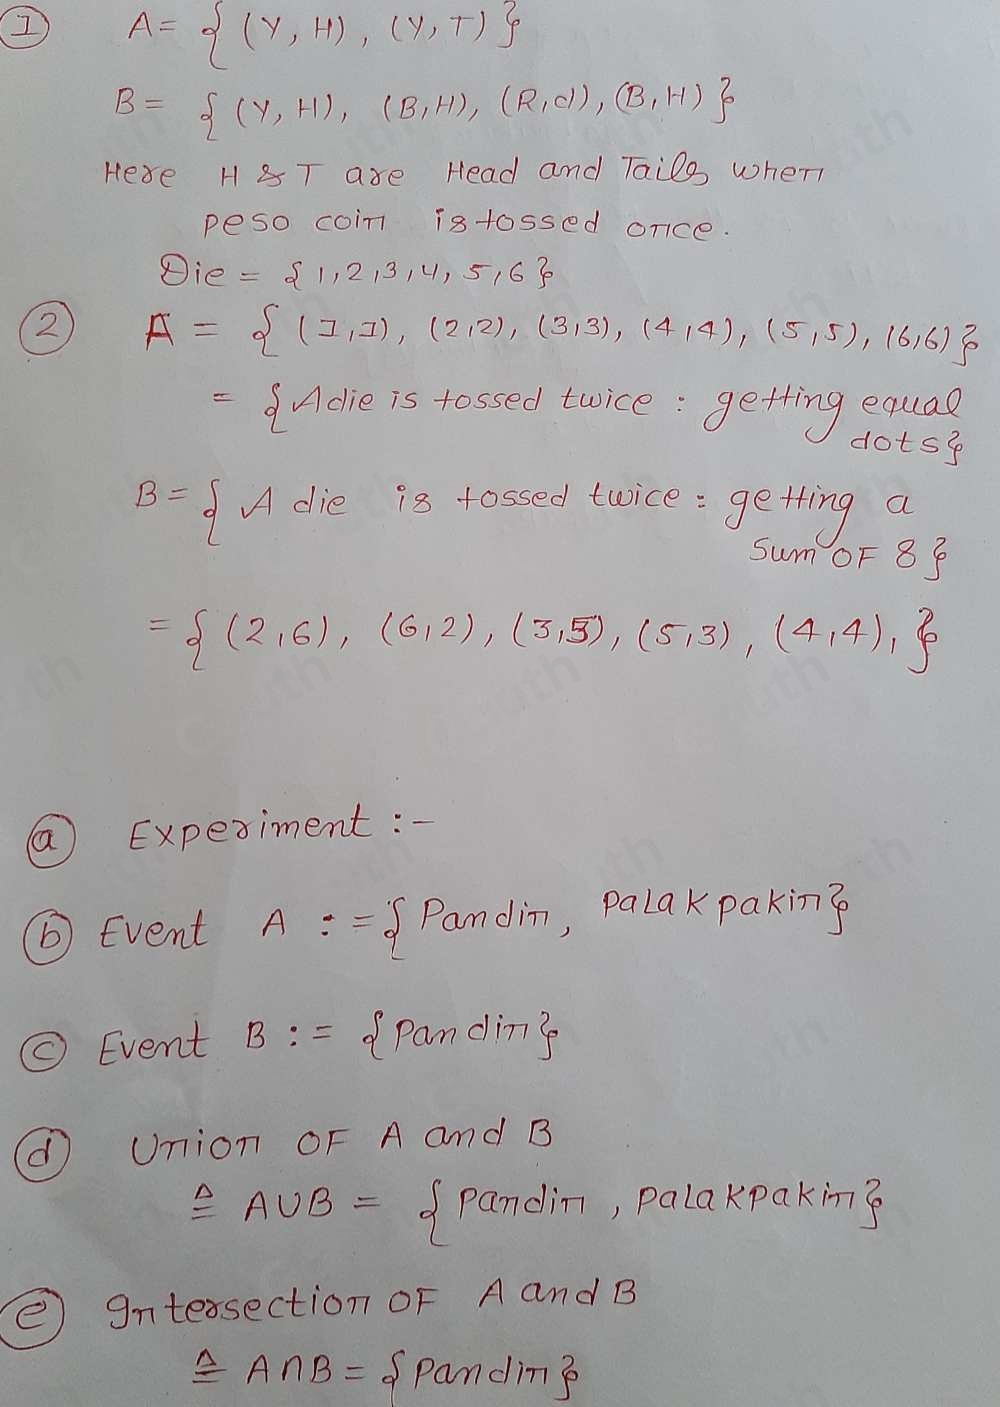 1 A = { (Y, H), (Y, T) }
B = { (Y, H), (B, H), (R, d), (B, H) }
Here H & T are Head and Tails when
peso coin is tossed once.
Die = { 1, 2, 3, 4, 5, 6 }
2 A = { (1, 1), (2, 2), (3, 3), (4, 4), (5, 5), (6, 6) }
= { A die is tossed twice : getting equal
dots }
B = { A die is tossed twice : getting a
sum OF 8 }
= { (2, 6), (6, 2), (3, 5), (5, 3), (4, 4), }
a Experiment :-
b Event A := { Pandin, PaLakpakin }
c Event B := { Pandin }
d Union OF A and B
≜ A∪B = { Pandin, PaLakpakin }
e Intersection OF A and B
≜ A∩B = { Pandin }